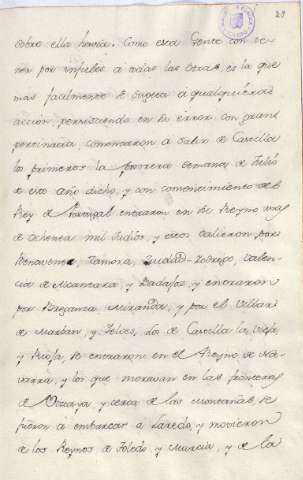 29
sobre ella hauia. Como esta Gente con te-
ner por infieles a todas las otras, es la que
mas facilmente se sugeta a qualquiera
accion persistiendo en su error con gran
pertinacia, comenzaron a salir de Castilla
los primeros la primera semana de Julio
de este año dicho, y con consentimiento del
Rey de Portugal entraron en su Reyno mas
de ochenta mil Judios, y estos salieron por
Benavente, Zamora, Ziudad-Rodrigo, Valen-
cia de Alcantara, y Badajoz, y entraron
por Braganza, Miranda, y por el Villar
de Marban, y Yelves, Los de Castilla la Vieja,
y Rioja se entraron en el Reyno de Na-
varra, y los que moravan en las fronteras
de Vizcaya y cerca de las Montañas, se
fueron a embarcar a Laredo, y movieron
de los Reynos de Toledo, y Murcia, y de la